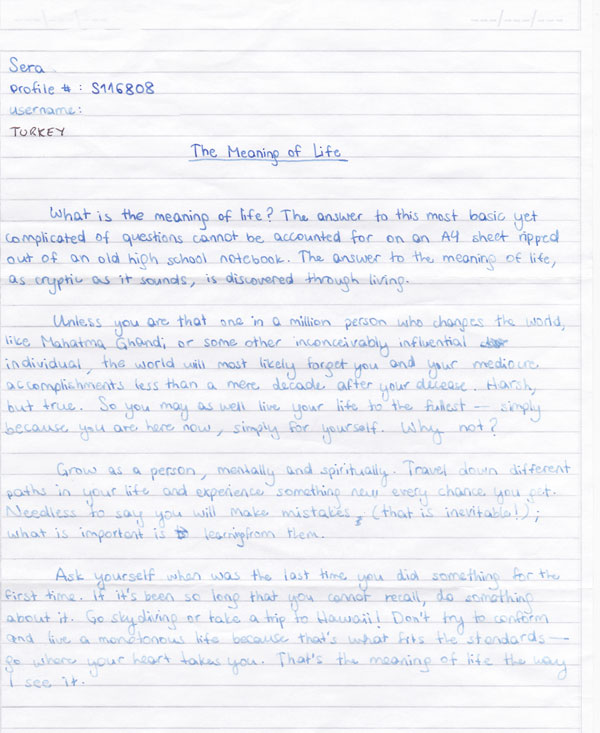 Sera
Profile # : S116808
username:
TURKEY
The Meaning of Life
What is the meaning of life? The answer to this most basic yet
complicated of questions cannot be accounted for on an A4 sheet ripped
out of an old high school notebook. The answer to the meaning of life,
as cryptic as it sounds, is discovered through living.
Unless you are that one in a million person who changes the world,
like Mahatma Ghandi or some other inconceivably influential
individual, the world will most likely forget you and your mediocre
accomplishments less than a mere decade after your decease. Harsh,
but true. So you may as well live your life to the fullest — simply
because you are here now, simply for yourself. Why not?
Grow as a person, mentally and spiritually. Travel down different
paths in your life and experience something new every chance you get.
Needless to say you will make mistakes, (that is inevitable!);
what is important is learning from them.
Ask yourself when was the last time you did something for the
first time. If it's been so long that you cannot recall, do something
about it. Go skydiving or take a trip to Hawaii! Don't try to conform
and live a monotonous life because that's what fits the standards —
go where your heart takes you. That's the meaning of life the way
I see it.